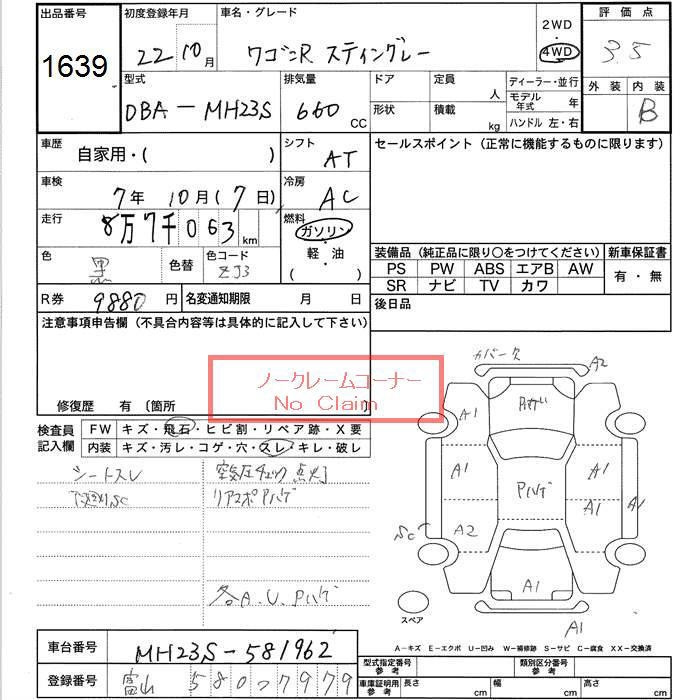 出品番号 初度登録年月 車名・グレード 2WD 評価点
1639 22 10月 ワゴンR スティングレー 4WD 3.5
型式 排気量 ドア 定員 ディーラー・並行 外装 内装
DBA-MH23S 660 CC 人 モデル年式 年 B
形状 積載 kg ハンドル 左・右
車歴 自家用・( ) シフト AT セールスポイント(正常に機能するものに限ります)
車検 7年 10月(7日) 冷房 AC
走行 8万7千063km 燃料 ガソリン
色 黒 色替 色コード ZJ3 軽・油
( )
装備品(純正品に限り○をつけてください) 新車保証書
PS PW ABS エアB AW 有・無
SR ナビ TV カワ
R券 9880円 名変通知期限 月 日 後日品
注意事項申告欄(不具合内容等は具体的に記入して下さい)
ノークレームコーナー
No Claim
修復歴 有 〔箇所 〕
検査員記入欄 FW キズ・飛石・ヒビ割・リペア跡・X要
内装 キズ・汚レ・コゲ・穴・スレ・キレ・破レ
シートスレ 空気圧チェック点灯
下廻りSC リアスポPハゲ
各A.U.Pハゲ
カバーク A2
A1 Pハゲ
A1 Pハゲ A1
A1 A1
SC A2
A1
スペア A1
A-キズ E-エクボ U-凹み W-補修跡 S-サビ C-腐食 XX-交換済
車台番号 MH23S-581962
型式指定番号 参考 類別区分番号 参考
登録番号 富山 580 7979
車庫証明用 参考 長さ cm 幅 cm 高さ cm